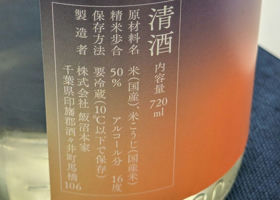 清酒 内容量 720ml
原材料名 米(国産)、米こうじ(国産米)
精米歩合 50% アルコール分 16度
保存方法 要冷蔵(10℃以下で保存)
製造者 株式会社 飯沼本家
千葉県印旛郡酒々井町馬橋106